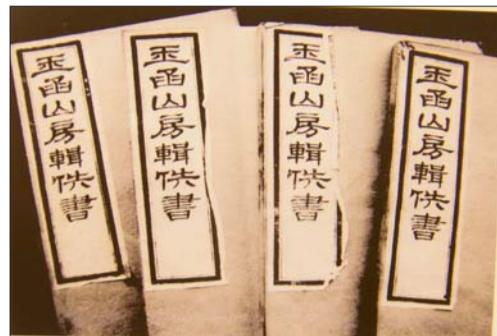 玉函山房輯佚書
玉函山房輯佚書
玉函山房輯佚書
玉函山房輯佚書